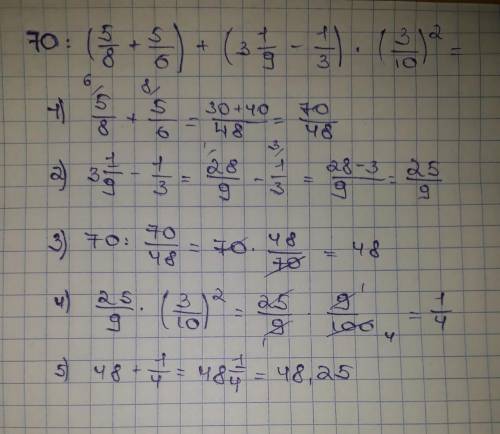 70 : (5/8 + 5/6) + (3 1/9 - 1/3) · (3/10)² =
1) 6/ 5/8 + 8/ 5/6 = 30+40/48 = 70/48
2) 3 1/9 - 1/3 = 1/ 28/9 - 3/ 1/3 = 28-3/9 = 25/9
3) 70 : 70/48 = 70 · 48/70 = 48
4) 25/9 · (3/10)² = 25/9 · 9/100 = 1/4
5) 48 + 1/4 = 48 1/4 = 48,25